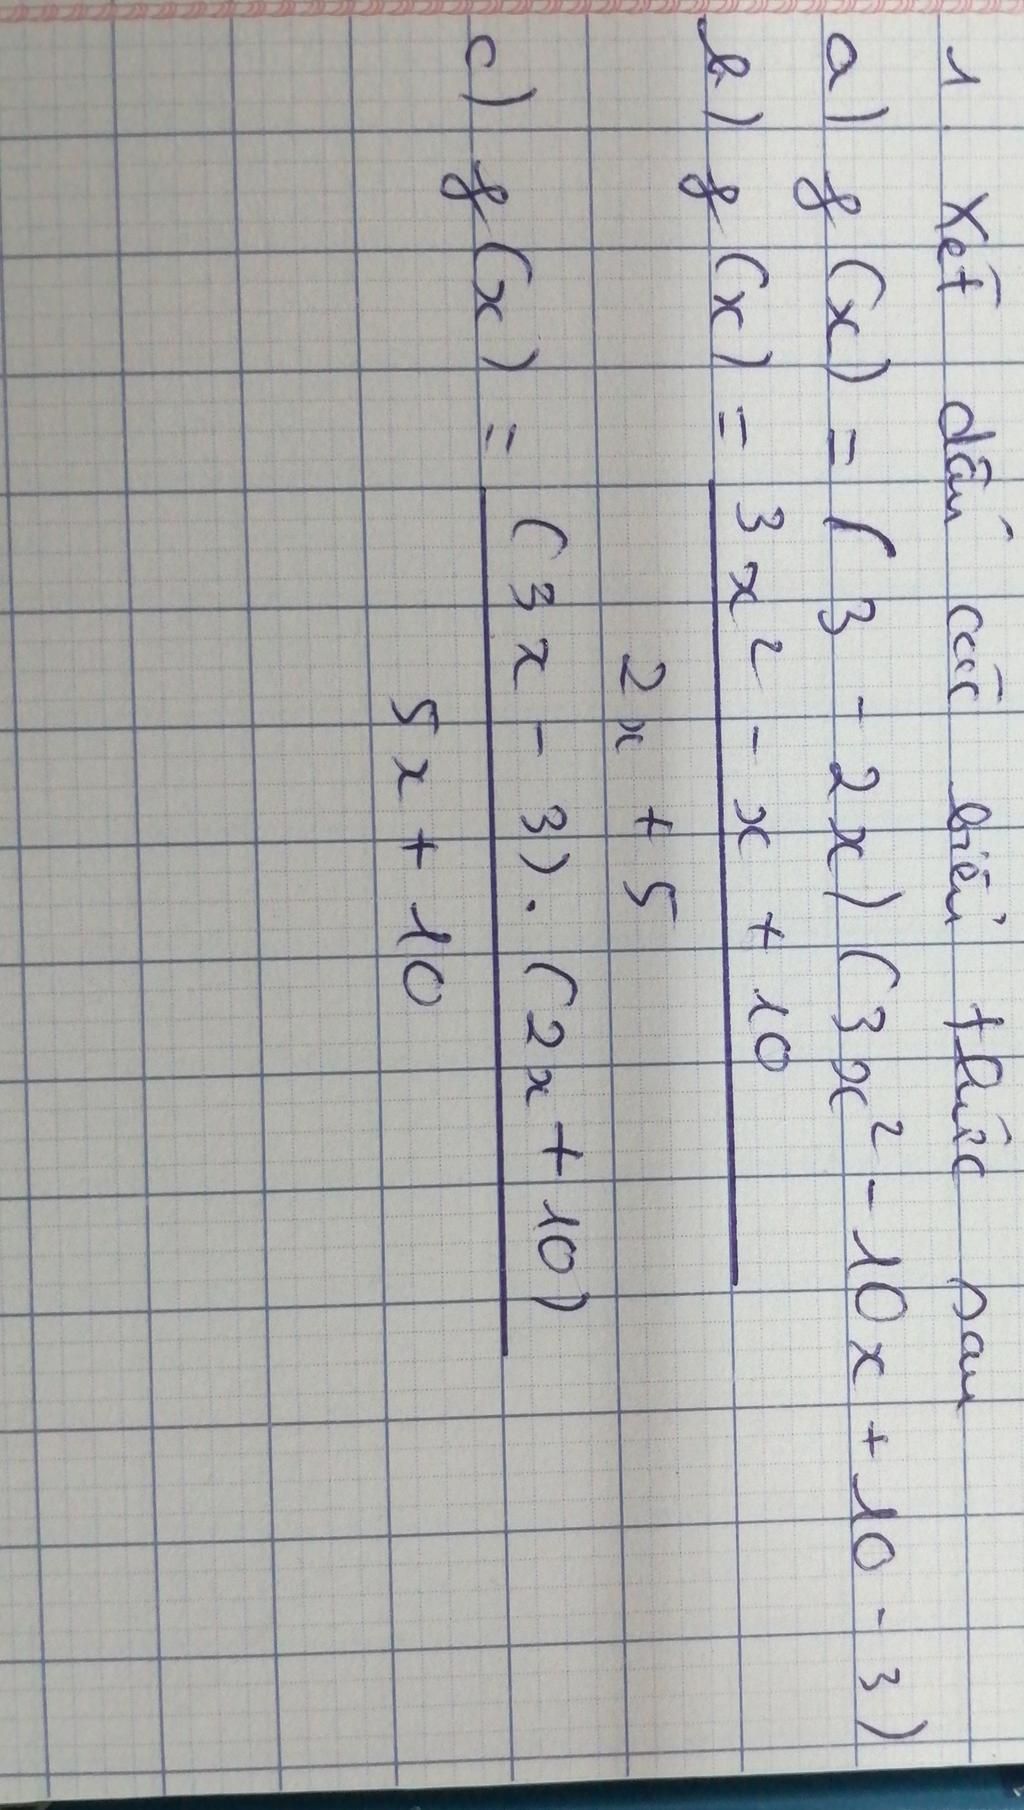 1. Xét dấu các biểu thức sau
a) f(x) = (3 - 2x)(3x² - 10x + 10 - 3)
b) f(x) = 3x² - x + 10
2x + 5
c) f(x) = (3x - 3).(2x + 10)
5x + 10